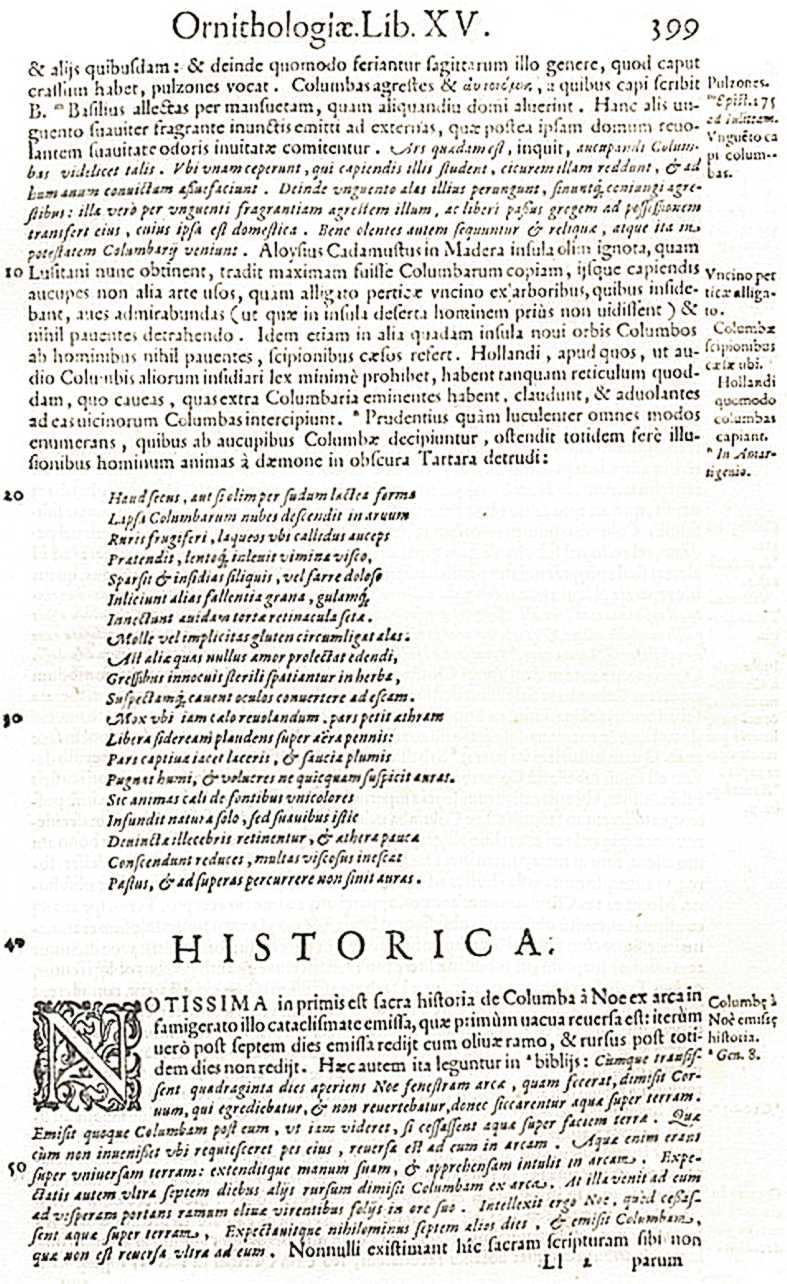 Ornithologiæ. Lib. XV. 399
& alijs quibusdam: & deinde quomodo feriantur sagittarum illo genere, quod caput
crassium habet, pulzones vocat. Columbas agrestes & , a quibus capi scribit
B. ᵐ Basilius allectas per mansuetam, quam aliquandiu domi aluerint. Hanc alis un-
guento suauiter fragrante inunctis emitti ad externas, quæ postea ipsam domum reuo-
lantem suauitate odoris inuitatæ comitentur. Ars quædam est, inquit, aucupandi Colum-
bas videlicet talis. Vbi vnam ceperunt, qui capiendis illis student, cicurem illam reddunt, & ad
humanum conuictum assuefaciunt. Deinde vnguento alas illius perungunt, sinuntq́; coniungi agre-
stibus: illa verò per vnguenti fragrantiam agrestem illum, ac liberi passus gregem ad possessionem
transfert eius, cuius ipsa est domestica. Bene olentes autem sequuntur & reliquæ, atque ita in
potestatem Columbarij veniunt. Aloysius Cadamustus in Madera insula olim ignota, quam
10 Lusitani nunc obtinent, tradit maximam fuisse Columbarum copiam, ijsque capiendis
aucupes non alia arte usos, quam alligato perticæ vncino ex arboribus, quibus inside-
bant, aues admirabundas (ut quæ in insula deserta hominem priùs non uidissent) &
nihil pauentes detrahendo. Idem etiam in alia quadam insula noui orbis Columbos
ab hominibus nihil pauentes, scipionibus cæsos refert. Hollandi, apud quos, ut au-
dio Columbis aliorum insidiari lex minimè prohibet, habent tanquam reticulum quod-
dam, quo caueas, quas extra Columbaria eminentes habent, claudunt, & aduolantes
ad eas uicinorum Columbas intercipiunt. ⁿ Prudentius quàm luculenter omnes modos
enumerans, quibus ab aucupibus Columbæ decipiuntur, ostendit totidem ferè illu-
sionibus hominum animas à dæmone in obscura Tartara detrudi:
Pulzones.
ᵐ Epist. 175
ad Iulittam.
Vnguēto ca
pi colum-
bas.
Vncino per
ticæ alliga-
to.
Columbæ
scipionibus
cæsæ ubi.
Hollandi
quomodo
columbas
capiant.
ⁿ In Amar-
tigenio.
20 Haud secus, aut si olim per sudum lactea forma
Lapsa Columbarum nubes descendit in aruum
Ruris frugiferi, laqueos vbi callidus auceps
Prætendit, lentoq́; inleuit vimina visco,
Sparsit & insidias siliquis, vel farre doloso
Inliciunt alias fallentia grana, gulamq́;
Innectunt auidam tortæ retinacula setæ.
Molle vel implicitas gluten circumligat alas:
Ast aliæ quas nullus amor prolectat edendi,
Gressibus innocuis sterili spatiantur in herba,
Suspectamq́; cauent oculos conuertere ad escam.
30 Mox vbi iam cælo reuolandum, pars petit æthram
Libera sideream plaudens super aëra pennis:
Pars captiua iacet lacerit, & saucia plumis
Pugnat humi, & volucres ne quicquam suspicit auras.
Sic animas cæli de fontibus vnicolores
Infundit natura solo, sed suauibus istic
Deuinctæ illecebris retinentur, & æthera pauca
Conscendunt reduces, multas viscosus inescat
Pastus, & ad superas percurrere non sinit auras.
40 HISTORICA.
NOTISSIMA in primis est sacra historia de Columba à Noe ex arca in
famigerato illo cataclismate emissa, quæ primùm uacua reuersa est: iterùm
uerò post septem dies emissa redijt cum oliuæ ramo, & rursus post toti-
dem dies non redijt. Hæc autem ita leguntur in ᵃ biblijs: Cùmque transis-
sent quadraginta dies aperiens Noe fenestram arcæ, quam fecerat, dimisit Cor-
uum, qui egrediebatur, & non reuertebatur, donec siccarentur aquæ super terram.
Emisit quoque Columbam post eum, vt iam videret, si cessassent aquæ super faciem terræ. Quæ
cùm non inuenisset vbi requiesceret pes eius, reuersa est ad eum in arcam. Aquæ enim erant
50 super vniuersam terram: extenditque manum suam, & apprehensam intulit in arcam. Expe-
ctatis autem vltra septem diebus alijs rursum dimisit Columbam ex arca. At illa venit ad eum
ad vesperam portans ramum oliuæ virentibus folijs in ore suo. Intellexit ergo Noe, quòd cessas-
sent aquæ super terram, Expectauitque nihilominus septem alios dies, & emisit Columbam,
quæ non est reuersa vltra ad eum. Nonnulli existimant hîc sacram scripturam sibi non
Columbę à
Noè emissę
historia.
ᵃ Gen. 8.
Ll 2 parum